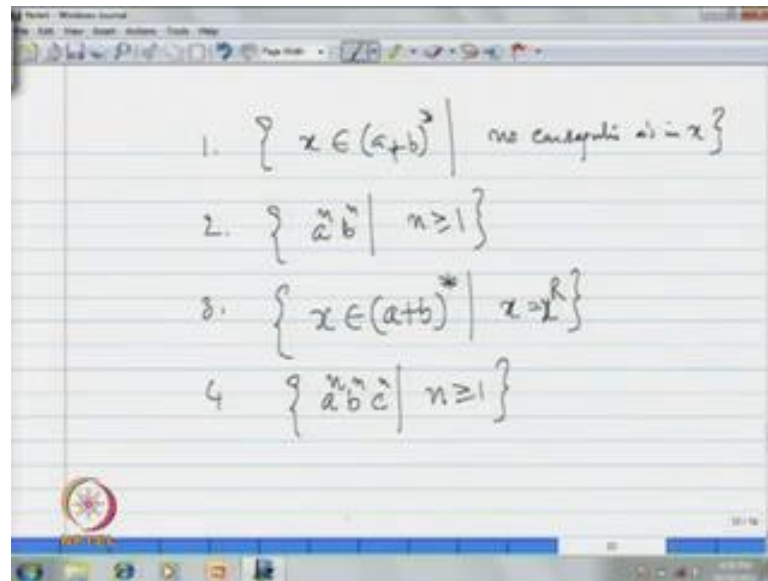 Note1 - Windows Journal
File Edit View Insert Actions Tools Help
Page Width
1. { x ∈ (a+b)* | no a's in x }
2. { aⁿbⁿ | n ≥ 1 }
3. { x ∈ (a+b)* | x = xᴿ }
4 { aⁿbⁿcⁿ | n ≥ 1 }
NPTEL